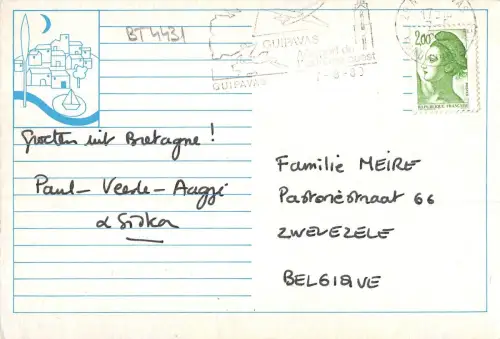 BT 4431
GUIPAVAS
GUIPAVAS
2,00
REPUBLIQUE FRANÇAISE
Groeten uit Bretagne!
Paul - Veerle - Aaggi
&
Familie MEIRE
Pastoriestraat 66
ZWEVEZELE
BELGIQUE